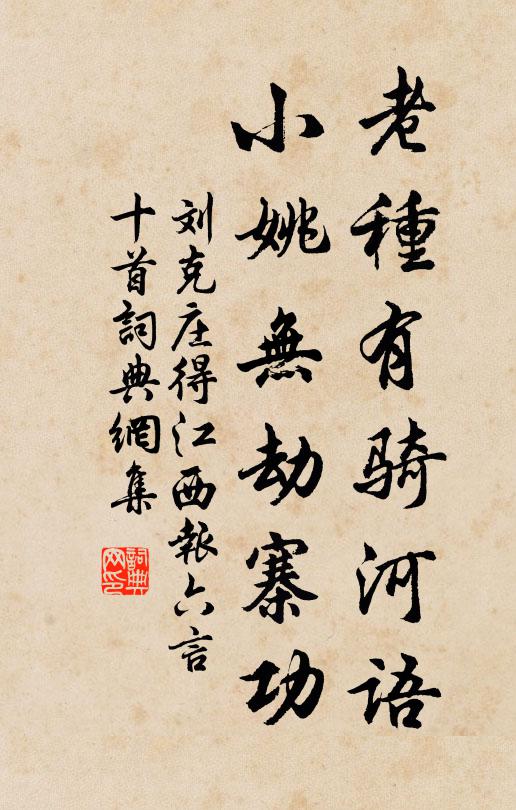 老種有骑河语
小姚無劫寨功
刘克庄得江西報六言
十首詞典網集
詞典网印